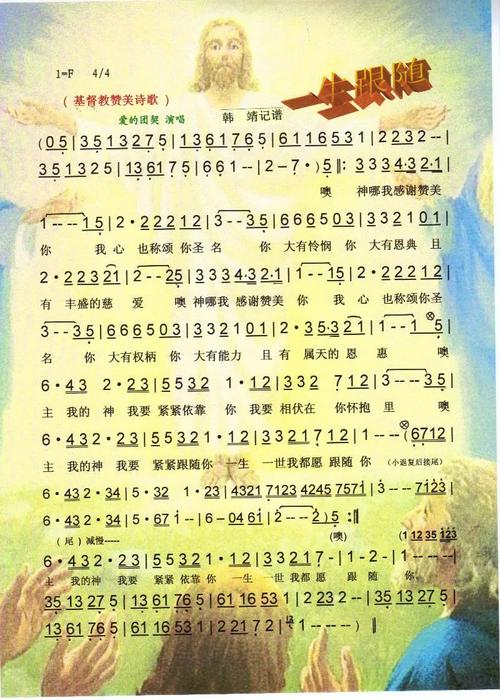 一生跟随
1=F 4/4
( 基督教赞美诗歌 )
爱的团契 演唱 韩 靖记谱
(05|3513275|13617675|6116531|2232--|
35132 5|136175 2|61161--|2-7·)5‖:333 4·32·1|
噢 神哪我感谢赞美
1---15|2·22212|3--35|666503|332101|
你 我 心 也称颂 你圣 名 你 大有怜悯 你 大有恩典 且
2·22321|2--25|333 4·32·1|1--15|2·22212|
有 丰盛的慈 爱 噢 神哪我 感谢赞美 你 我 心 也称颂你圣
3--35|666503|332101|2·35·321|1--1 5|
名 你 大有权柄 你 大有能力 且 有 属天的 恩 惠 噢
6·432 2·34|5·532 1·12|3323 712|3---35|
主 我的神 我要 紧紧依靠 你 我要 相伏在 你怀抱 里 噢
6·432 2·34|5·532 1·12|3321712|1---(6712|
主 我的神 我要 紧紧跟随你 一生 一世我都愿 跟随 你 (小返复后接尾)
6·432·34|5·32 1·23|43217123 42457571|3---7123|
6·432·34|5·671--|6-0461|2---2)5:‖
(尾) 减慢----- (噢) (1 1235 123
6·432·34|5·532 1·12|33217·-|1-2-|1---|
主 我的神 我要 紧紧 依靠 你 一生 一世我都愿 跟 随 你。
35 13 27 5|13 61 76 5|61 16 53 1|2 2 3 2--|35 13 27 5|
13 61 76 5|61 16 53 1|2 2 17 2|1---)‖